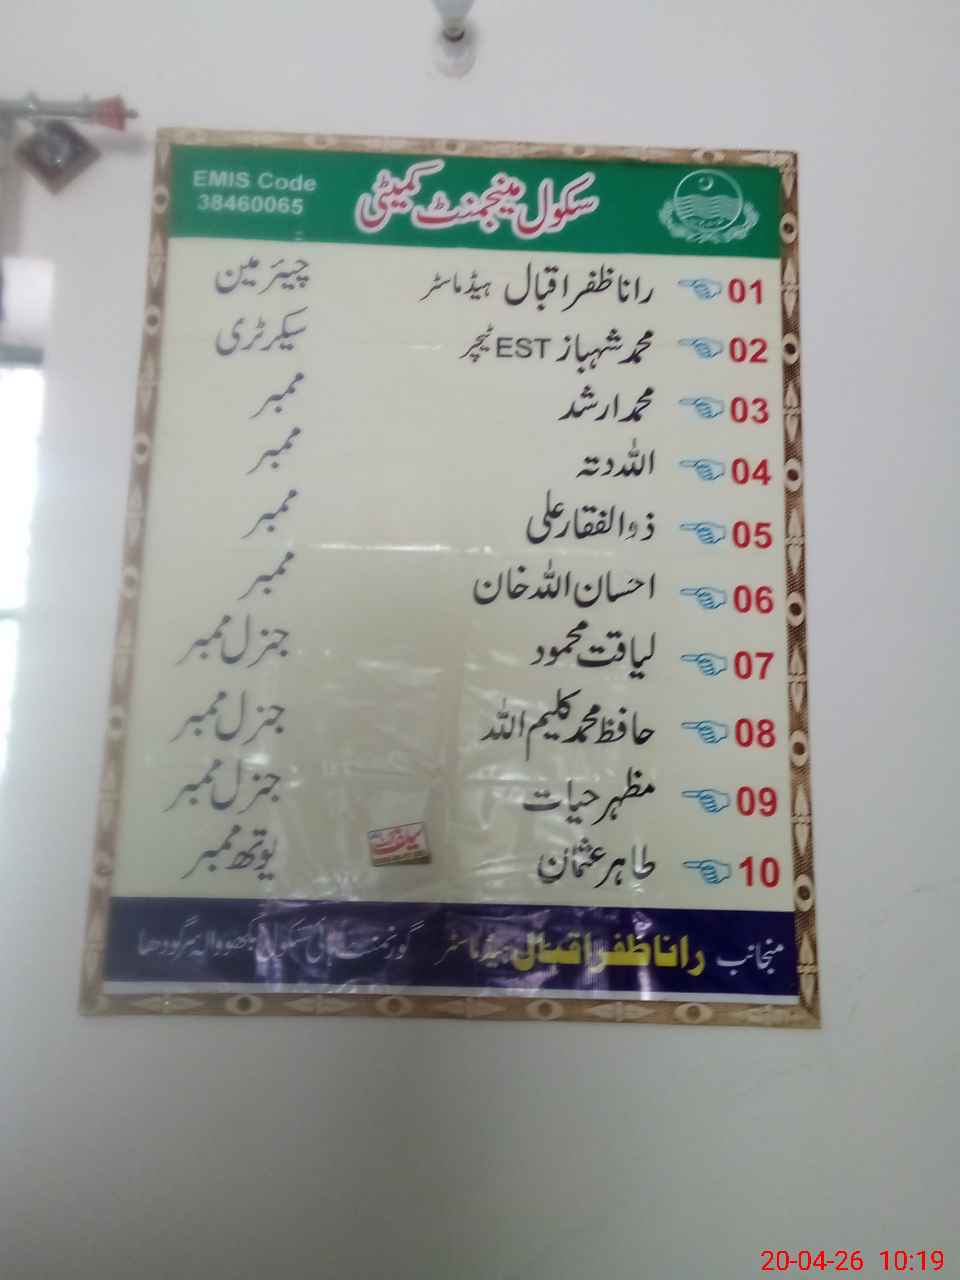 EMIS Code
38460065
سکول مینجمنٹ کمیٹی
01 رانا ظفر اقبال ہیڈ ماسٹر چیئر مین
02 محمد شہباز EST ٹیچر سیکرٹری
03 محمد ارشد ممبر
04 اللہ دتہ ممبر
05 ذوالفقار علی ممبر
06 احسان اللہ خان ممبر
07 لیاقت محمود جنرل ممبر
08 حافظ محمد کلیم اللہ جنرل ممبر
09 مظہر حیات جنرل ممبر
10 طاہر عثمان یوتھ ممبر
منجانب رانا ظفر اقبال ہیڈ ماسٹر گورنمنٹ ہائی سکول سرگودھا
20-04-26 10:19